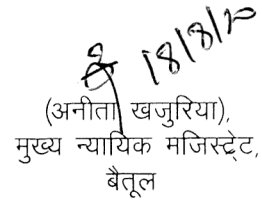 18/8/20
(अनीता खजुरिया),
मुख्य न्यायिक मजिस्ट्रेट,
बैतूल